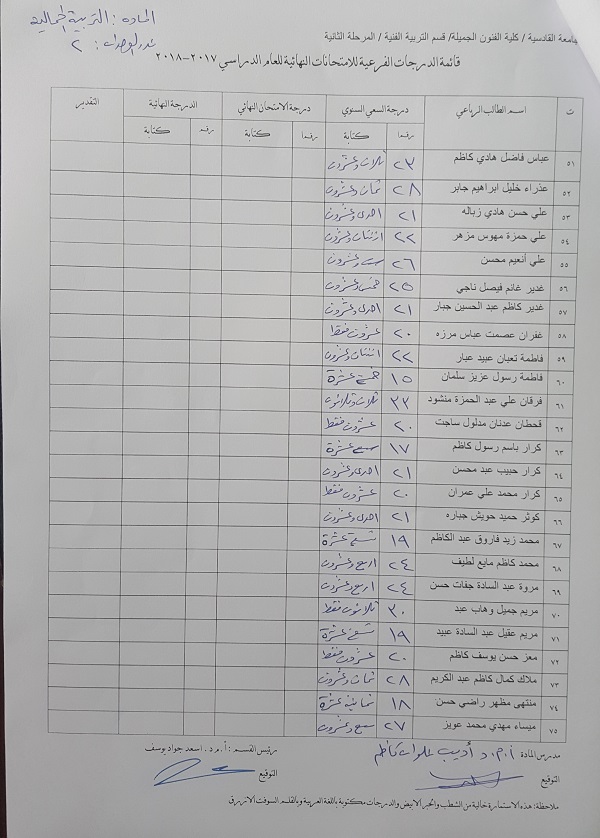 المادة : التربية الجمالية
عدد الوحدات : ٢
جامعة القادسية / كلية الفنون الجميلة/ قسم التربية الفنية / المرحلة الثانية
قائمة الدرجات الفرعية للامتحانات النهائية للعام الدراسي ٢٠١٧-٢٠١٨
ت اسم الطالب الرباعي درجة السعي السنوي درجة الامتحان النهائي الدرجة النهائية التقدير
رقما كتابة رقما كتابة رقما كتابة
٥١ عباس فاضل هادي كاظم ٢٣ ثلاث وعشرون
٥٢ عذراء خليل ابراهيم جابر ٢٨ ثمان وعشرون
٥٣ علي حسن هادي زباله ٢١ احدى وعشرون
٥٤ علي حمزة مهوس مزهر ٢٢ اثنتان وعشرون
٥٥ علي أنعيم محسن ٢٦ ست وعشرون
٥٦ غدير غانم فيصل ناجي ٢٥ خمس وعشرون
٥٧ غدير كاظم عبد الحسين جبار ٢١ احدى وعشرون
٥٨ غفران عصمت عباس مرزه ٢٠ عشرون فقط
٥٩ فاطمة تعبان عبيد عبار ٢٢ اثنتان وعشرون
٦٠ فاطمة رسول عزيز سلمان ١٥ خمس عشرة
٦١ فرقان علي عبد الحمزة منشود ٣٣ ثلاث وثلاثون
٦٢ قحطان عدنان مدلول ساجت ٢٠ عشرون فقط
٦٣ كرار باسم رسول كاظم ١٧ سبع عشرة
٦٤ كرار حبيب عبد محسن ٢١ احدى وعشرون
٦٥ كرار محمد علي عمران ٢٠ عشرون فقط
٦٦ كوثر حميد حويش جباره ٢١ احدى وعشرون
٦٧ محمد زيد فاروق عبد الكاظم ١٩ تسع عشرة
٦٨ محمد كاظم مايع لطيف ٢٤ اربع وعشرون
٦٩ مروة عبد السادة جفات حسن ٢٤ اربع وعشرون
٧٠ مريم جميل وهاب عبد ٣٠ ثلاثون فقط
٧١ مريم عقيل عبد السادة عبيد ١٩ تسع عشرة
٧٢ معز حسن يوسف كاظم ٢٠ عشرون فقط
٧٣ ملاك كمال كاظم عبد الكريم ٢٨ ثمان وعشرون
٧٤ منتهى مظهر راضي حسن ١٨ ثمانية عشرة
٧٥ ميساء مهدي محمد عويز ٢٧ سبع وعشرون
مدرس المادة أ.م.د أديب علوان كاظم رئيس القسم : أ.م.د. اسعد جواد يوسف
التوقيع التوقيع
ملاحظة : هذه الاستمارة خالية من الشطب والحبر الابيض والدرجات مكتوبة باللغة العربية وبالقلم السوفت الازرق